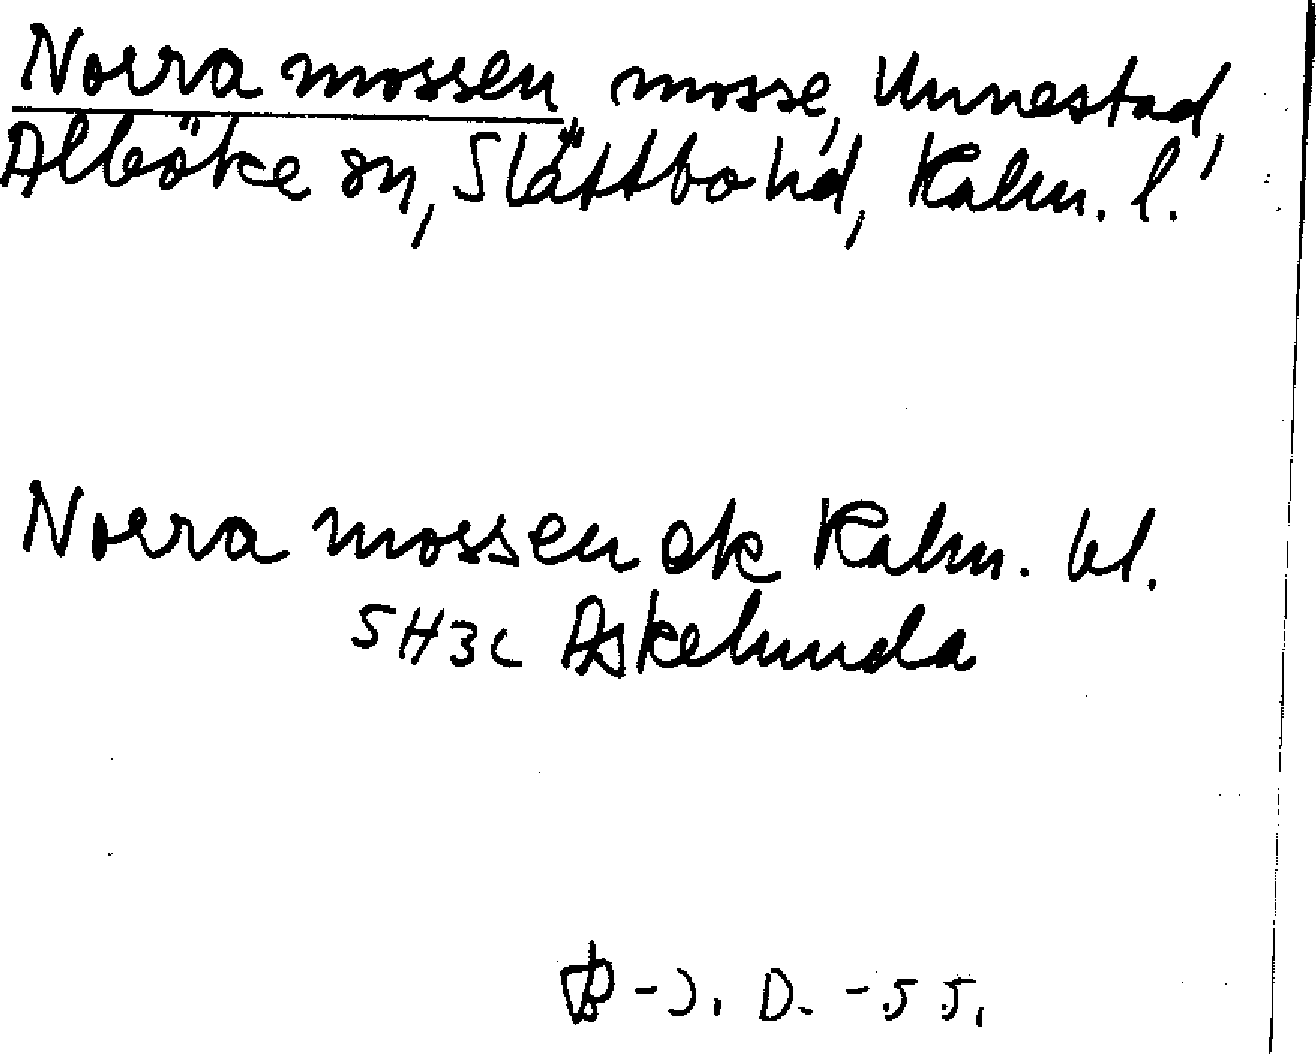 Norra mossen mosse, Unnestad,
Alböke sn, Slättbo hd, Kalm. l.
Norra mossen ek Kalm. bl.
5H3c Askelunda
B-J. D. -55.